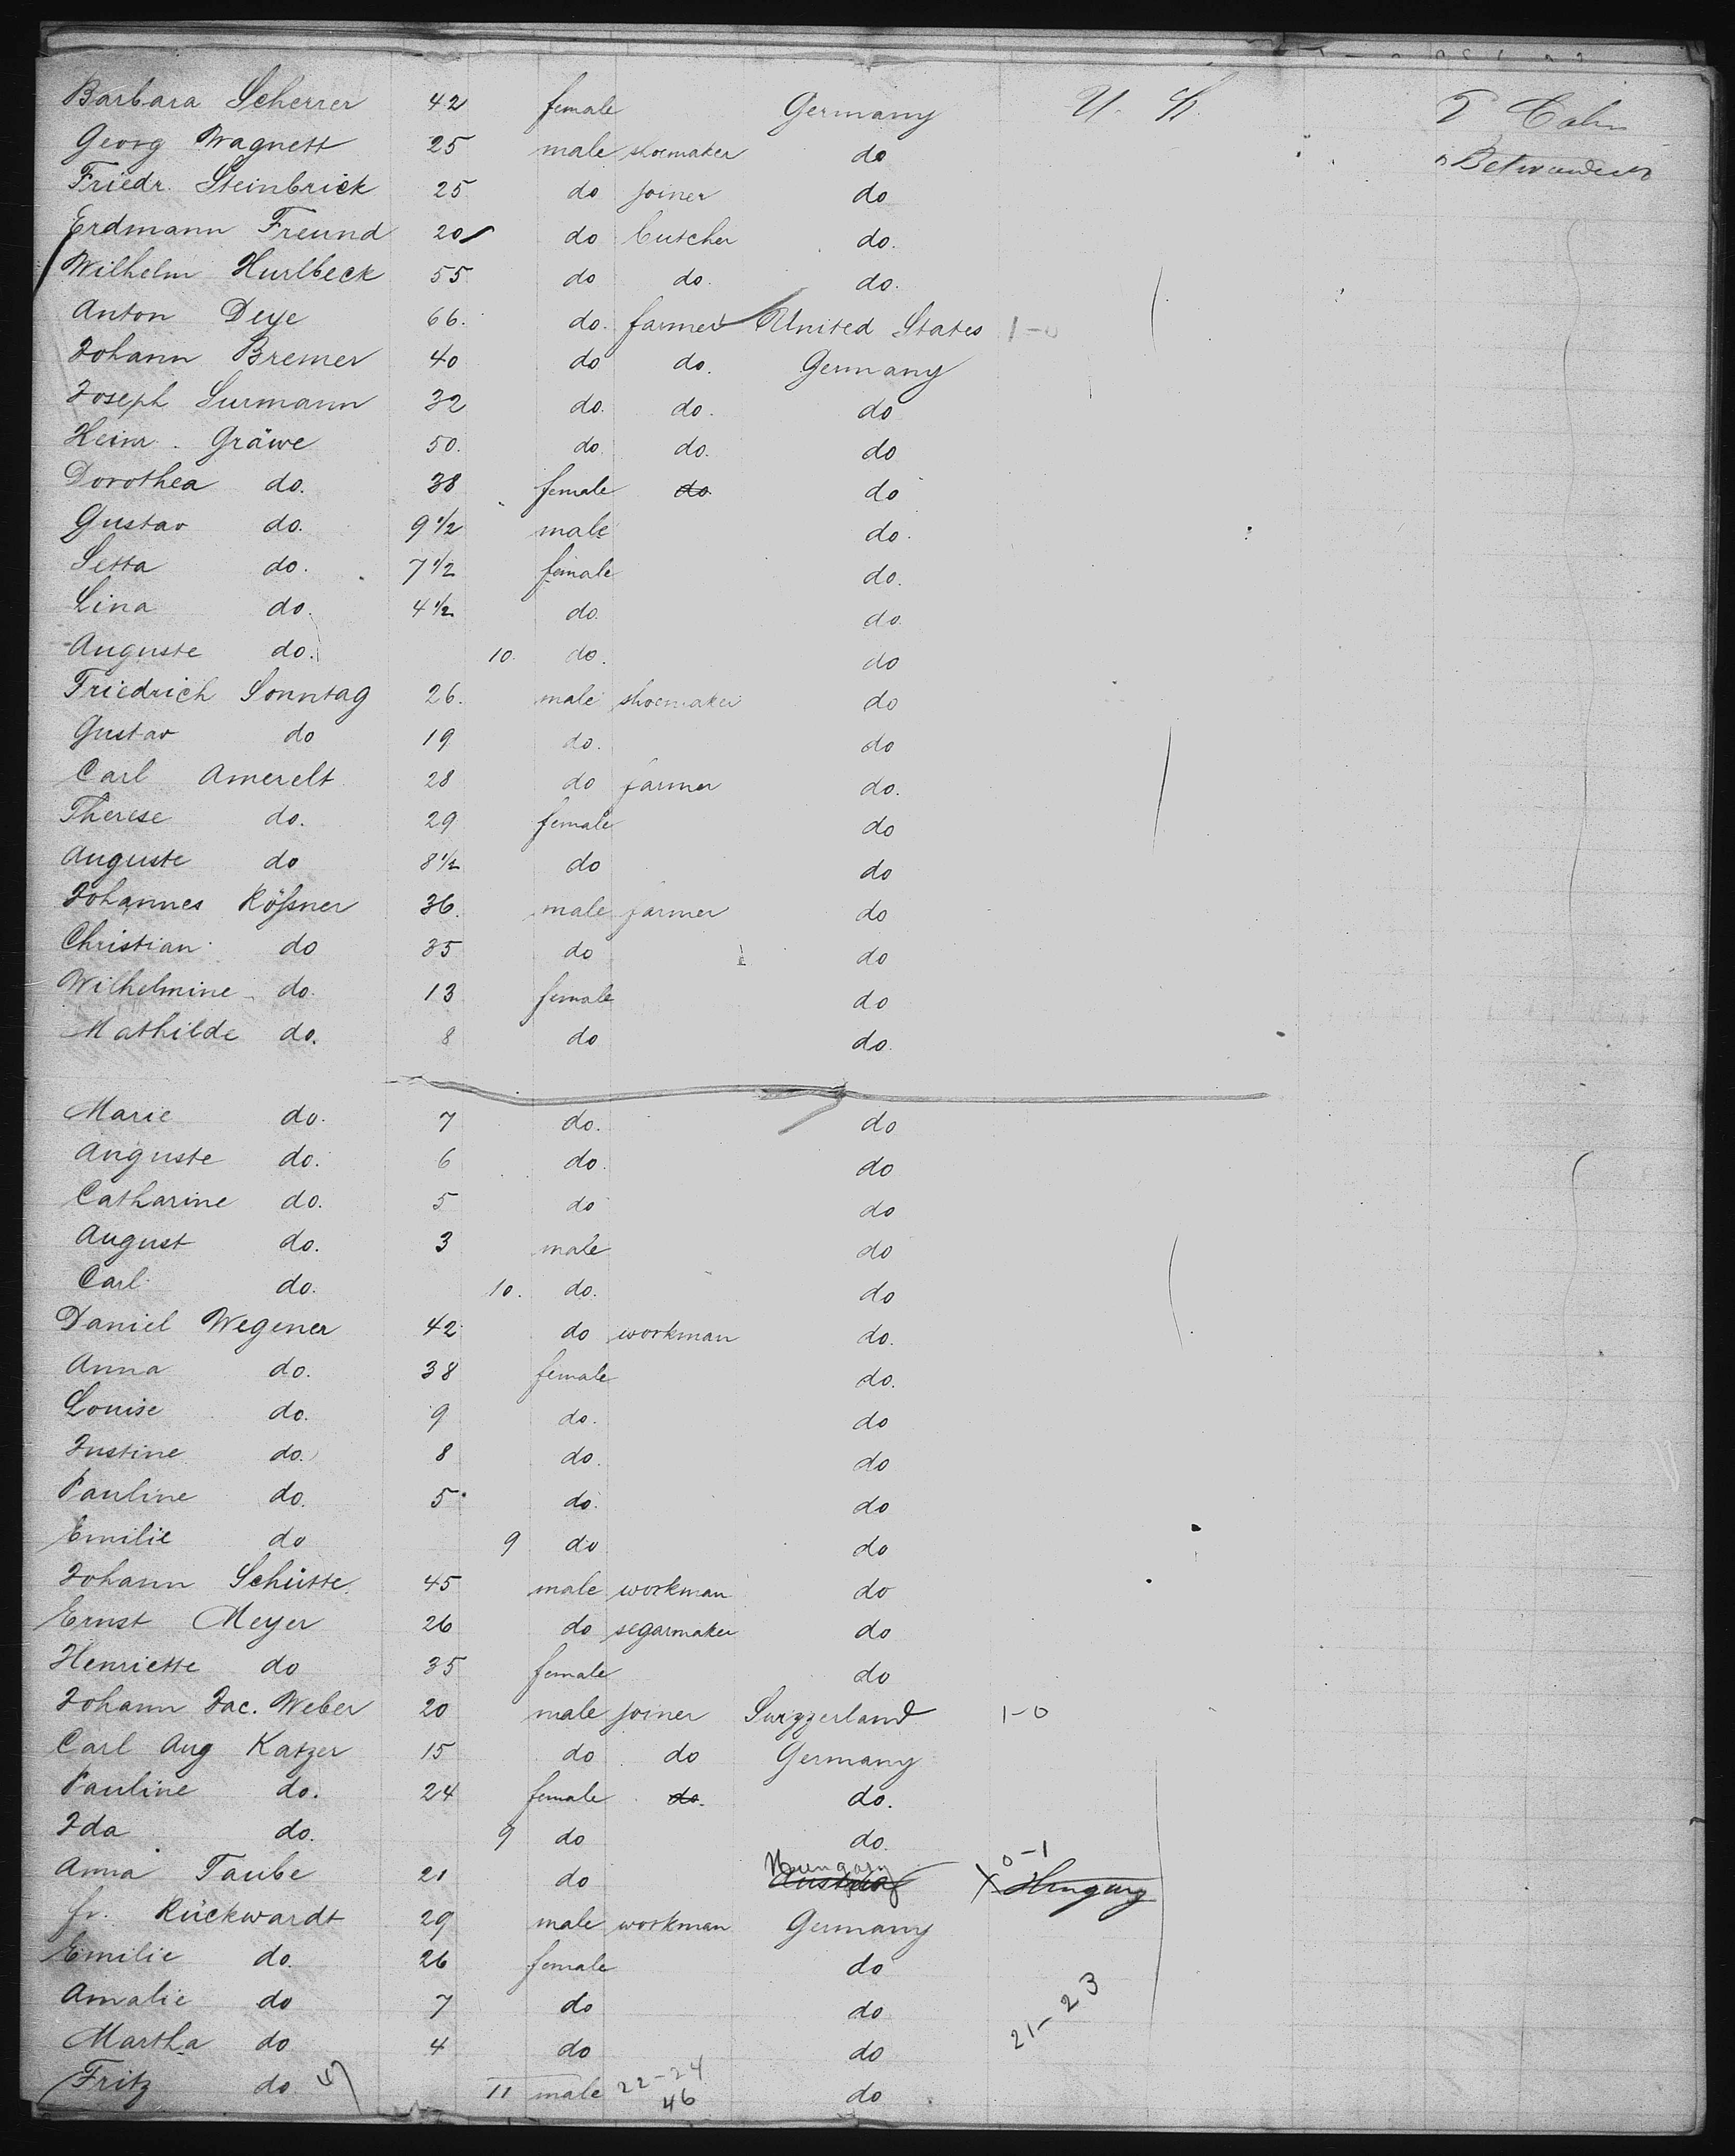 Barbara Scherrer 42 female Germany U. St.
Georg Wagnett 25 male shoemaker do
Friedr. Steinbrick 25 do joiner do
Erdmann Freund 20 do butcher do.
Wilhelm Hurlbeck 55 do do. do.
Anton Deye 66. do. farmer United States 1-0
Johann Bremer 40 do do. Germany
Joseph Surmann 32 do. do. do
Heinr. Gräwe 50. do do. do
Dorothea do. 38 female do do
Gustav do. 9 1/2 male do.
Setta do. 7 1/2 female do.
Lina do. 4 1/2 do. do.
Auguste do. 10. do. do
Friedrich Sonntag 26. male shoemaker do
Gustav do 19 do. do
Carl Amerelt 28 do farmer do.
Therese do. 29 female do
Auguste do 8 1/2 do do
Johannes Rößner 36. male farmer do
Christian do 35 do do
Wilhelmine do. 13 female do
Mathilde do. 8 do do.
Marie do. 7 do. do
Auguste do. 6 do. do
Catharine do. 5 do do
August do. 3 male do
Carl do. 10. do. do
Daniel Wegener 42 do workman do.
Anna do. 38 female do.
Louise do. 9 do. do
Justine do. 8 do. do
Pauline do. 5 do. do
Emilie do 9 do do
Johann Schütte 45 male workman do
Ernst Meyer 26 do segarmaker do
Henriette do 35 female do
Johann Jac. Weber 20 male joiner Swizzerland 1-0
Carl Aug Katzer 15 do do Germany
Pauline do. 24 female do. do.
Ida do. 9 do do.
Anna Taube 21 do Hungary Austria 0-1 X Hungary
Fr. Rückwardt 29 male workman Germany
Emilie do. 26 female do
Amalie do 7 do do 21-23
Martha do 4 do do
Fritz do 11 male 22-24 do
46